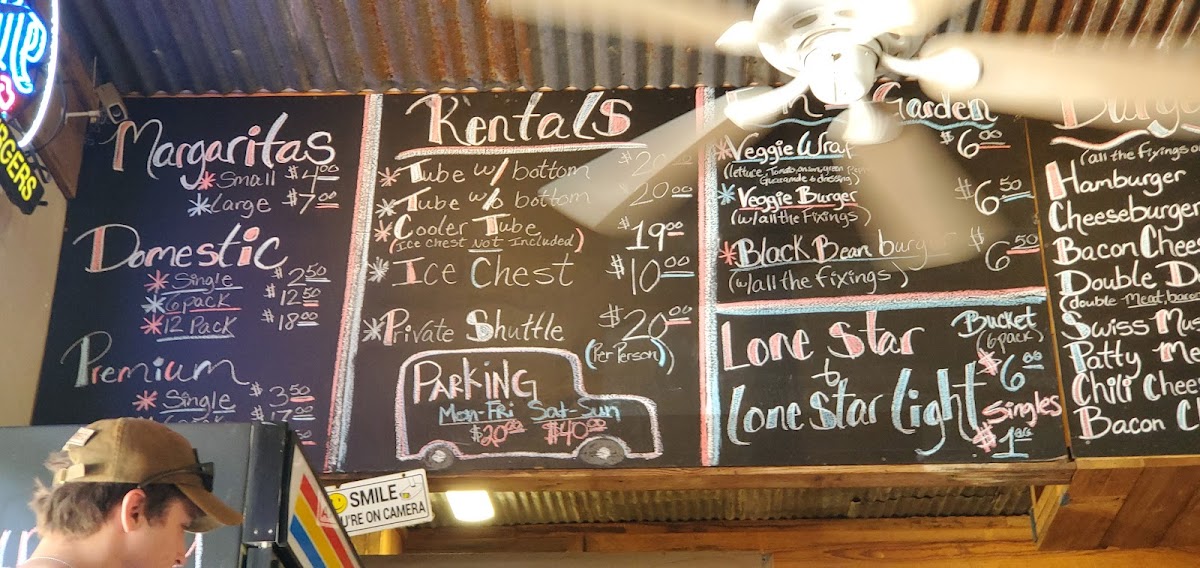 BURGERS
Margaritas
Small $4.00
Large $7.00
Domestic
Single $2.50
6 pack $12.50
12 Pack $18.00
Premium
Single $3.50
$17.00
Rentals
Tube w/ bottom $20.00
Tube w/o bottom 20.00
Cooler Tube $19.00
(Ice Chest Not Included)
Ice Chest $10.00
Private Shuttle $20.00
(Per Person)
PARKING
Mon-Fri Sat-Sun
$20.00 $40.00
Garden
Veggie Wrap $6.00
(lettuce, Tomato, onion, green
Guacamole & dressing)
Veggie Burger $6.50
(w/all the Fixings)
Black Bean burger $6.50
(w/all the Fixings)
Lone Star
to
Lone Star Light
Bucket
(6 pack)
$6.00
Singles
$1
(all the fixings
Hamburger
Cheeseburger
Bacon Chee
Double D
(double meat, baco
Swiss Mus
Patty Me
Chili Chee
Bacon C
SMILE
YOU'RE ON CAMERA